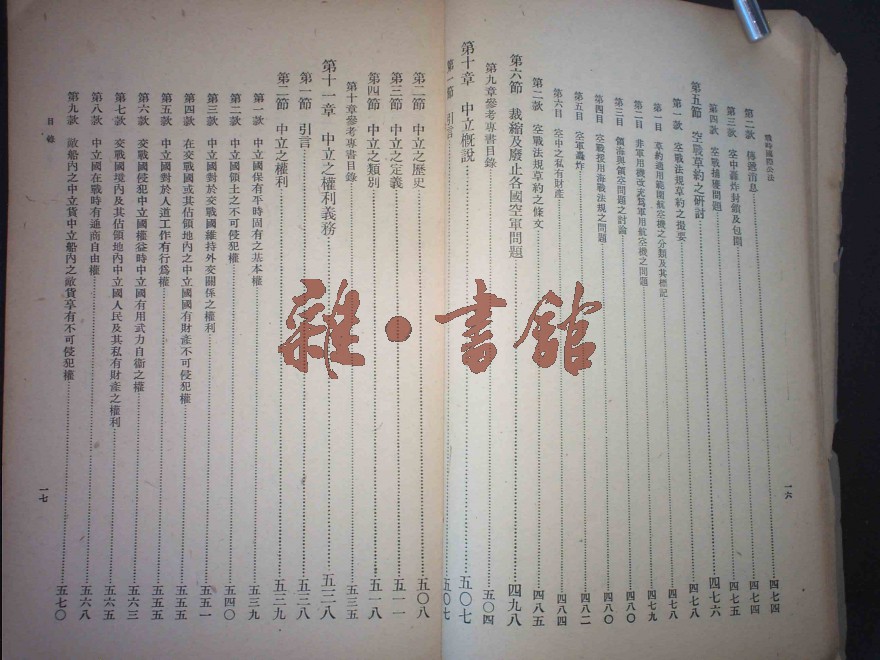 戰時國際公法
第二款 傳遞消息 四七四
第三款 空中轟炸封鎖及包圍 四七五
第四款 空戰捕獲問題 四七六
第五節 空戰草約之研討 四七八
第一款 空戰法規草約之提要 四七八
第一目 草約適用範圍航空機之分類及其標記 四七九
第二目 非軍用機改充為軍用航空機之問題 四八〇
第三目 領海與領空問題之討論 四八〇
第四目 空戰援用海戰法規之問題 四八一
第五目 空軍轟炸 四八二
第六目 空中之私有財產 四八四
第二款 空戰法規草約之條文 四八五
第六節 裁縮及廢止各國空軍問題 四九八
第九章參考專書目錄 五〇四
第十章 中立概說 五〇七
第一節 引言 五〇七
一六
第二節 中立之歷史 五〇八
第三節 中立之定義 五一一
第四節 中立之類別 五一八
第十章參考專書目錄 五三五
第十一章 中立之權利義務 五三八
第一節 引言 五三八
第二節 中立之權利 五三九
第一款 中立國保有平時固有之基本權 五三九
第二款 中立國領土之不可侵犯權 五四〇
第三款 中立國對於交戰國維持外交關係之權利 五五一
第四款 在交戰國或其佔領地內之中立國國有財產不可侵犯權 五五五
第五款 中立國對於人道工作有行爲權 五五五
第六款 交戰國侵犯中立國權益時中立國有用武力自衞之權 五六三
第七款 交戰國境內及其佔領地內中立國人民及其私有財產之權利 五六五
第八款 中立國在戰時有通商自由權 五六八
第九款 敵船內之中立貨中立船內之敵貨享有不可侵犯權 五七〇
目錄
一七
雜·書館